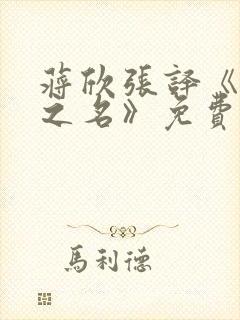 蔣欣張譯《
之名》免費
馬利德